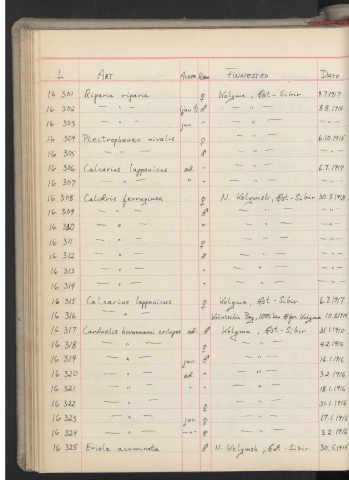 L ART Alder Kjønn FINNESTED DATO
16 301 Riparia riparia ♀ Kolyma, Øst-Sibir 9.7.1917
16 302 — " — (juv?) ♂ — " — 8.8.1916
16 303 — " — juv. — " — — " —
16 304 Plectrophenax nivalis ♀ — " — 6.10.1915
16 305 — " — ♂ — " — — " —
16 306 Calcarius lapponicus ad. " — " — 6.7.1917
16 307 — " — " " — " — — " —
16 308 Calidris ferruginea ♀ N. Kolymsk, Øst-Sibir 30.5.1918
16 309 — " — ♂ — " — — " —
16 310 — " — " — " — — " —
16 311 — " — ♀ — " — — " —
16 312 — " — ♂ — " — — " —
16 313 — " — " — " — — " —
16 314 — " — " — " — — " —
16 315 Calcarius lapponicus ♀ Kolyma, Øst-Sibir 6.7.1917
16 316 — " — Bay, 1000 km Kolyma 10.8.1919
16 317 Carduelis hornemanni exilipes ad. ♂ Kolyma, Øst-Sibir 31.1.1910
16 318 — " — ♀ — " — 4.2.1916
16 319 — " — juv. ♂ — " — 16.1.1916
16 320 — " — ad. " — " — 3.2.1916
16 321 — " — " " — " — 18.1.1916
16 322 — " — ♀ — " — 31.1.1916
16 323 — " — juv. ♀ — " — 17.1.1916
16 324 — " — — " — ♂ — " — 3.2.1916
16 325 Erolia acuminata ♀ N. Kolymsk, Øst-Sibir 30.5.1915